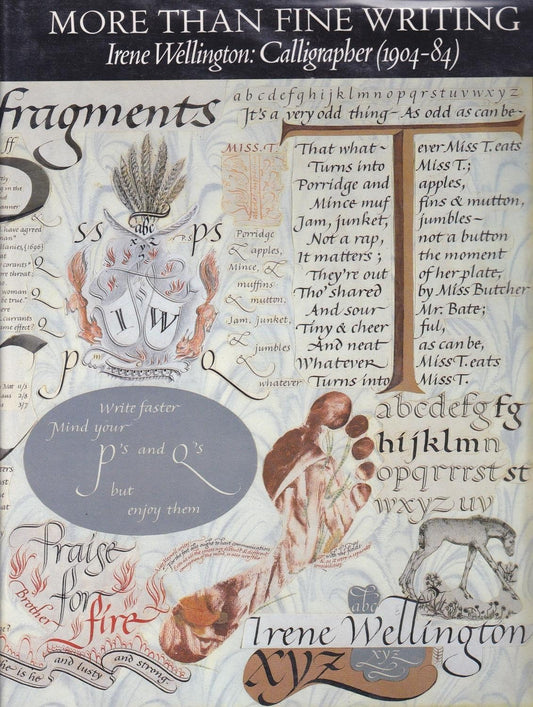 MORE THAN FINE WRITING
Irene Wellington: Calligrapher (1904-84)
fragments
abcdefghijklmnopqrstuvwxyz
It's a very odd thing- As odd as can be-
MISS.T.
T
That what- ever Miss T. eats
Turns into Miss T.;
Porridge and apples,
Mince, muf fins & mutton,
Jam, junket, jumbles-
Not a rap, not a button
It matters; the moment
They're out of her plate,
Tho' shared by Miss Butcher
And sour- Mr. Bate;
Tiny & cheer ful,
And neat as can be,
Whatever Miss T. eats
Turns into Miss T.
ff
have agreed
[1696]
currants
throat;
a woman
be true."
currants
same effect?
abc
xyz
ss
P.S
ps
I W
p
Q
Porridge
& apples,
Mince, &
muffins
& mutton,
Jam, junket,
& jumbles
whatever
Write faster
Mind your
P's and Q's
but
enjoy them
abcdefg fg
hijklmn
opqrrrst st
wxyz uv
Praise
for
Brother
fire
he is he and lusty and strong
abc
Irene Wellington
xyz
xyz